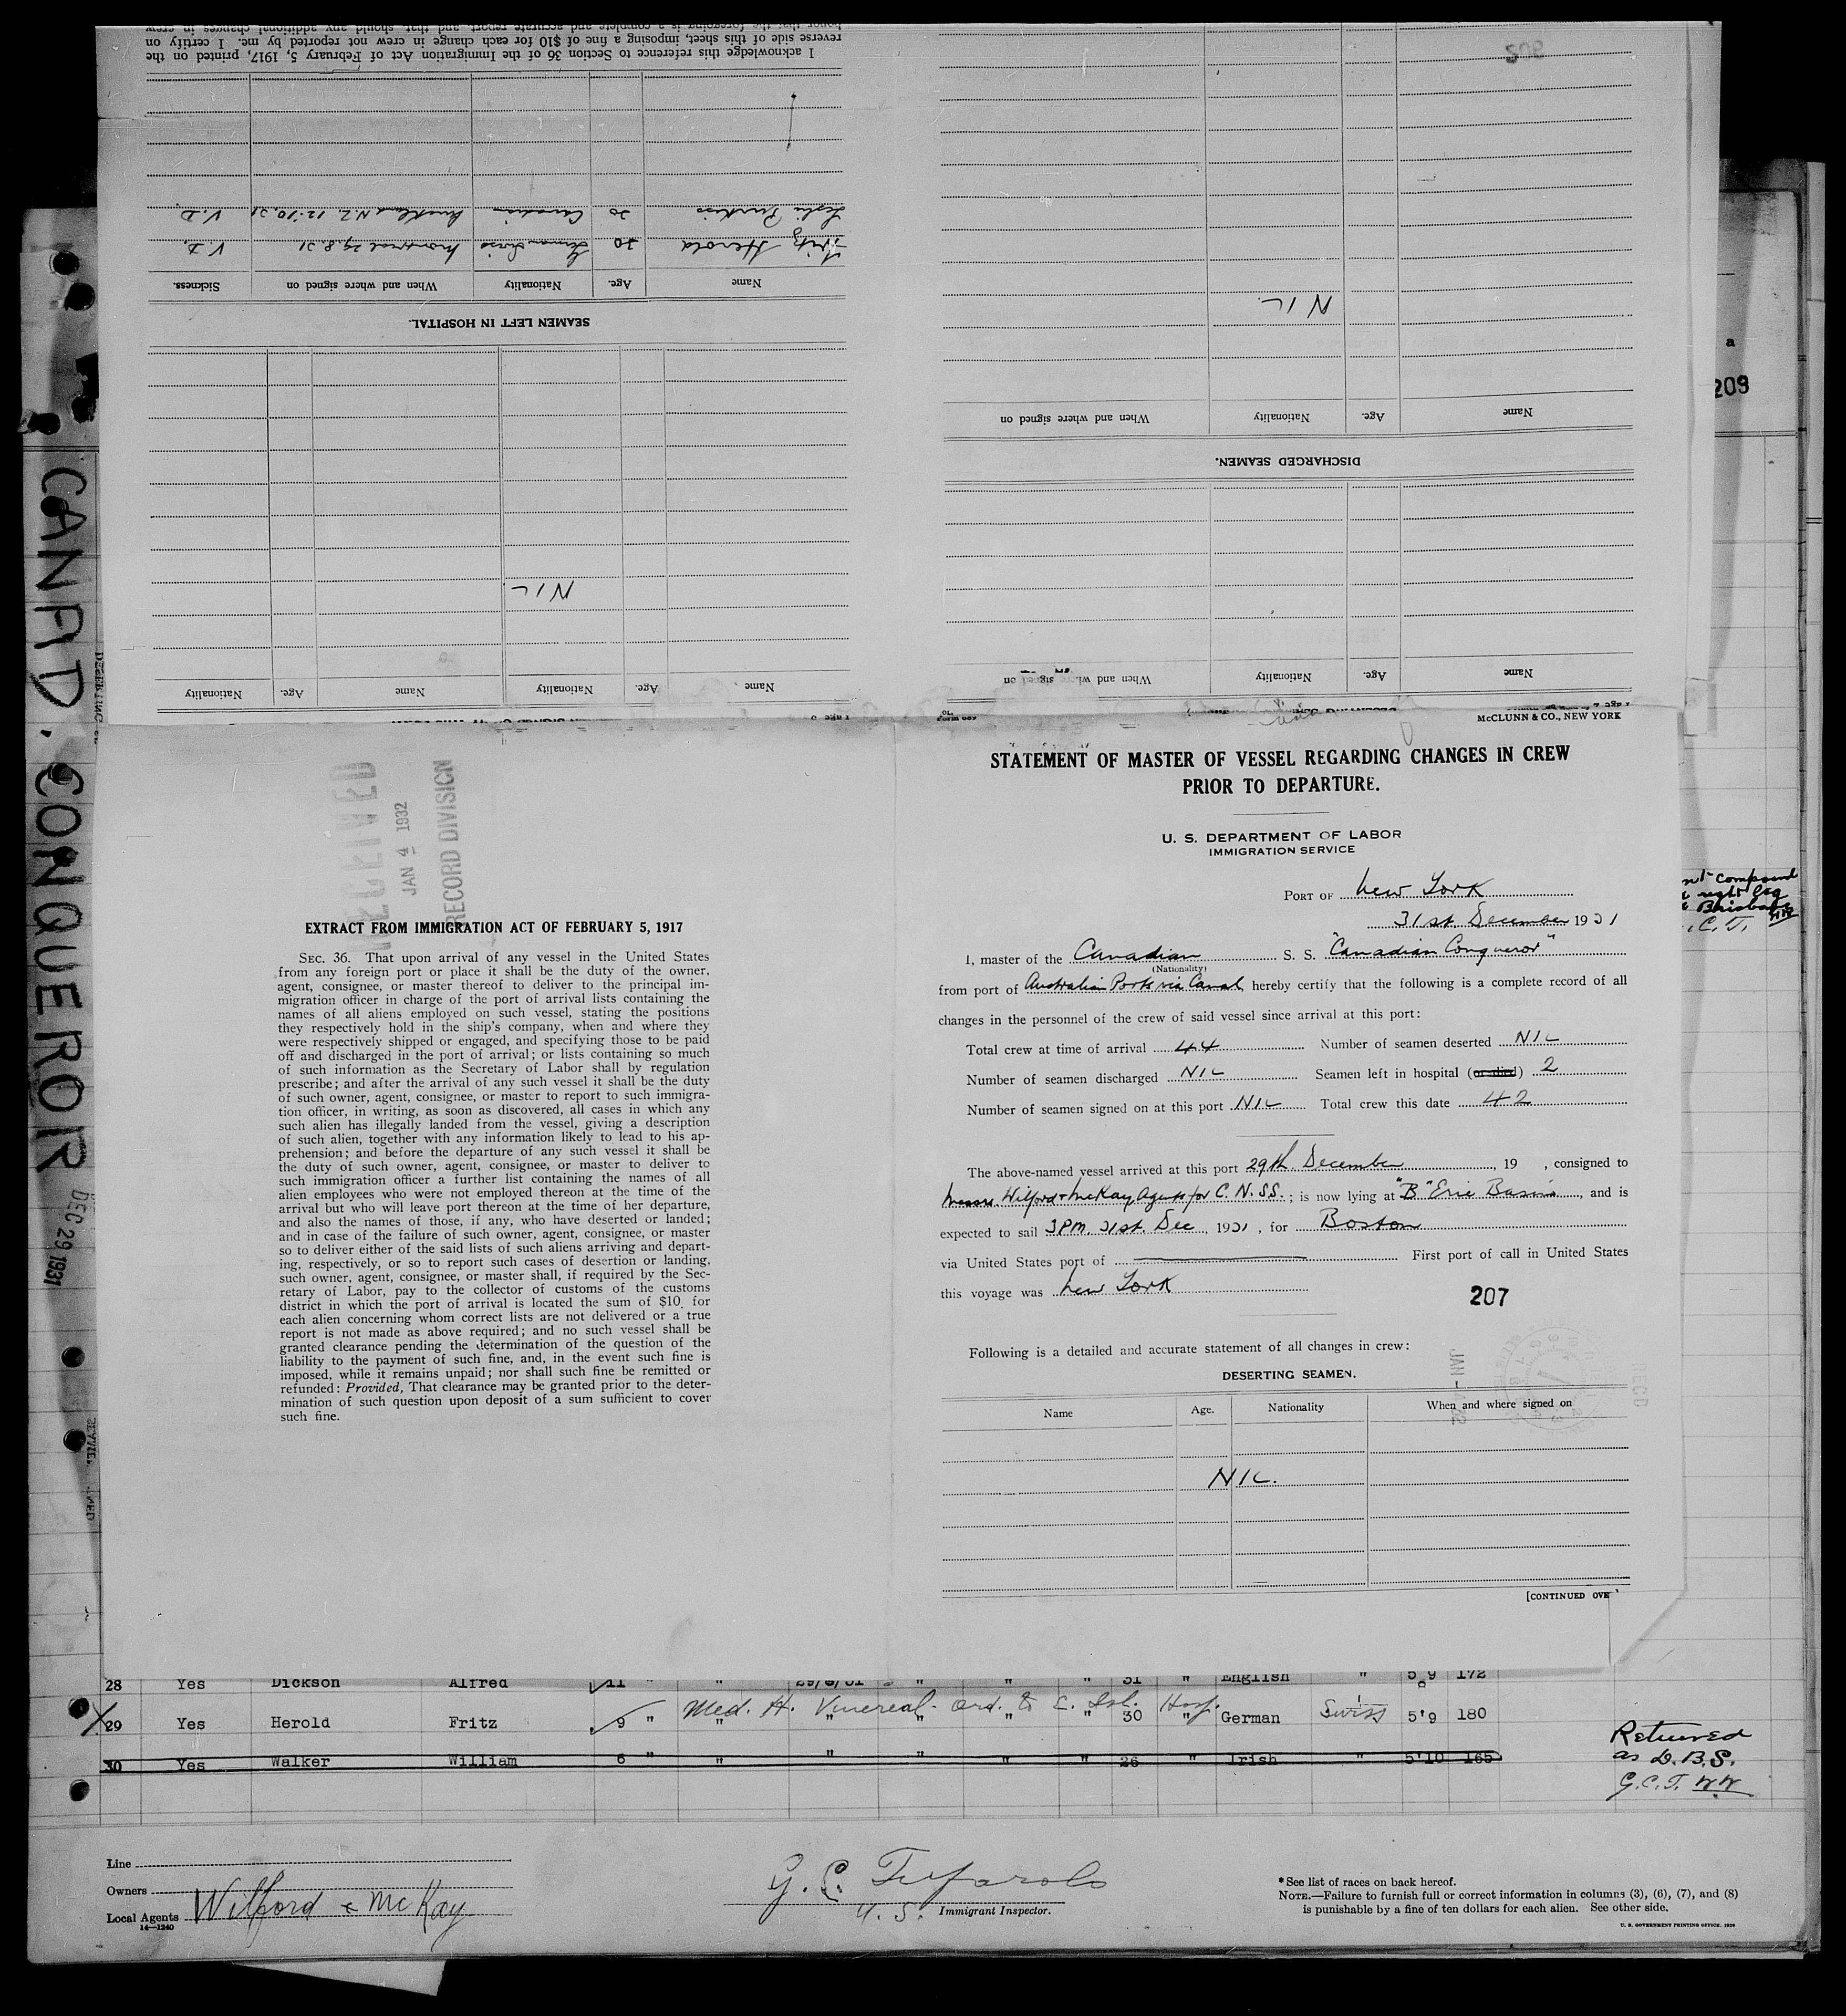 I acknowledge this reference to Section 36 of the Immigration Act of February 5, 1917, printed on the
reverse side of this sheet, imposing a fine of $10 for each change in crew not reported by me. I certify on
honor that the foregoing is a complete and accurate report and that should any additional changes in crew
SEAMEN LEFT IN HOSPITAL.
Name Age. Nationality When and where signed on Sickness.
Fritz Herold 30 Swiss Montreal 29.8.31 V.D.
Leslie 20 Canadian Auckland N.Z. 12.10.31 V.D.
Name Age. Nationality Name Age. Nationality
NIL
DISCHARGED SEAMEN.
Name Age. Nationality When and where signed on
NIL
Name Age. Nationality When and where signed on
a
209
CAN'AD. CONQUEROR DEC 29 1931
RECEIVED
JAN 4 1932
RECORD DIVISION
EXTRACT FROM IMMIGRATION ACT OF FEBRUARY 5, 1917
SEC. 36. That upon arrival of any vessel in the United States
from any foreign port or place it shall be the duty of the owner,
agent, consignee, or master thereof to deliver to the principal im-
migration officer in charge of the port of arrival lists containing the
names of all aliens employed on such vessel, stating the positions
they respectively hold in the ship's company, when and where they
were respectively shipped or engaged, and specifying those to be paid
off and discharged in the port of arrival; or lists containing so much
of such information as the Secretary of Labor shall by regulation
prescribe; and after the arrival of any such vessel it shall be the duty
of such owner, agent, consignee, or master to report to such immigra-
tion officer, in writing, as soon as discovered, all cases in which any
such alien has illegally landed from the vessel, giving a description
of such alien, together with any information likely to lead to his ap-
prehension; and before the departure of any such vessel it shall be
the duty of such owner, agent, consignee, or master to deliver to
such immigration officer a further list containing the names of all
alien employees who were not employed thereon at the time of the
arrival but who will leave port thereon at the time of her departure,
and also the names of those, if any, who have deserted or landed;
and in case of the failure of such owner, agent, consignee, or master
so to deliver either of the said lists of such aliens arriving and depart-
ing, respectively, or so to report such cases of desertion or landing,
such owner, agent, consignee, or master shall, if required by the Sec-
retary of Labor, pay to the collector of customs of the customs
district in which the port of arrival is located the sum of $10 for
each alien concerning whom correct lists are not delivered or a true
report is not made as above required; and no such vessel shall be
granted clearance pending the determination of the question of the
liability to the payment of such fine, and, in the event such fine is
imposed, while it remains unpaid; nor shall such fine be remitted or
refunded: Provided, That clearance may be granted prior to the deter-
mination of such question upon deposit of a sum sufficient to cover
such fine.
McCLUNN & CO., NEW YORK
STATEMENT OF MASTER OF VESSEL REGARDING CHANGES IN CREW
PRIOR TO DEPARTURE.
U. S. DEPARTMENT OF LABOR
IMMIGRATION SERVICE
PORT OF New York
31st December 1931
I, master of the Canadian S. S. "Canadian Conqueror"
(Nationality)
from port of Australian Ports via Canal, hereby certify that the following is a complete record of all
changes in the personnel of the crew of said vessel since arrival at this port:
Total crew at time of arrival 44 Number of seamen deserted NIL
Number of seamen discharged NIL Seamen left in hospital (or died) 2
Number of seamen signed on at this port NIL Total crew this date 42
The above-named vessel arrived at this port 29th December, 19 , consigned to
Messrs. Wilford & McKay, Agents for C. N. SS.; is now lying at "B" Erie Basin, and is
expected to sail 3 PM. 31st Dec, 1931, for Boston
via United States port of First port of call in United States
this voyage was New York
207
Following is a detailed and accurate statement of all changes in crew:
JAN - 4 32
RECD
DESERTING SEAMEN.
Name Age. Nationality When and where signed on
NIL.
[CONTINUED OVE
compound
right leg
Brisbane
G.C.T.
28 Yes Dickson Alfred 11 " " 29/8/31 " " " 31 " English " 5'9 172
Med. H. Venereal. Ord. to E. Isl. Hosp.
29 Yes Herold Fritz 9 " " " " " " 30 " German Swiss 5'9 180
30 Yes Walker William 6 " " " " " " 26 " Irish " 5'10 165
Returned
as D.B.S.
G.C.T.
Line
Owners
Local Agents Wilford & McKay
14—1240
U. S. Immigrant Inspector.
* See list of races on back hereof.
NOTE.—Failure to furnish full or correct information in columns (3), (6), (7), and (8)
is punishable by a fine of ten dollars for each alien. See other side.
U. S. GOVERNMENT PRINTING OFFICE. 1929